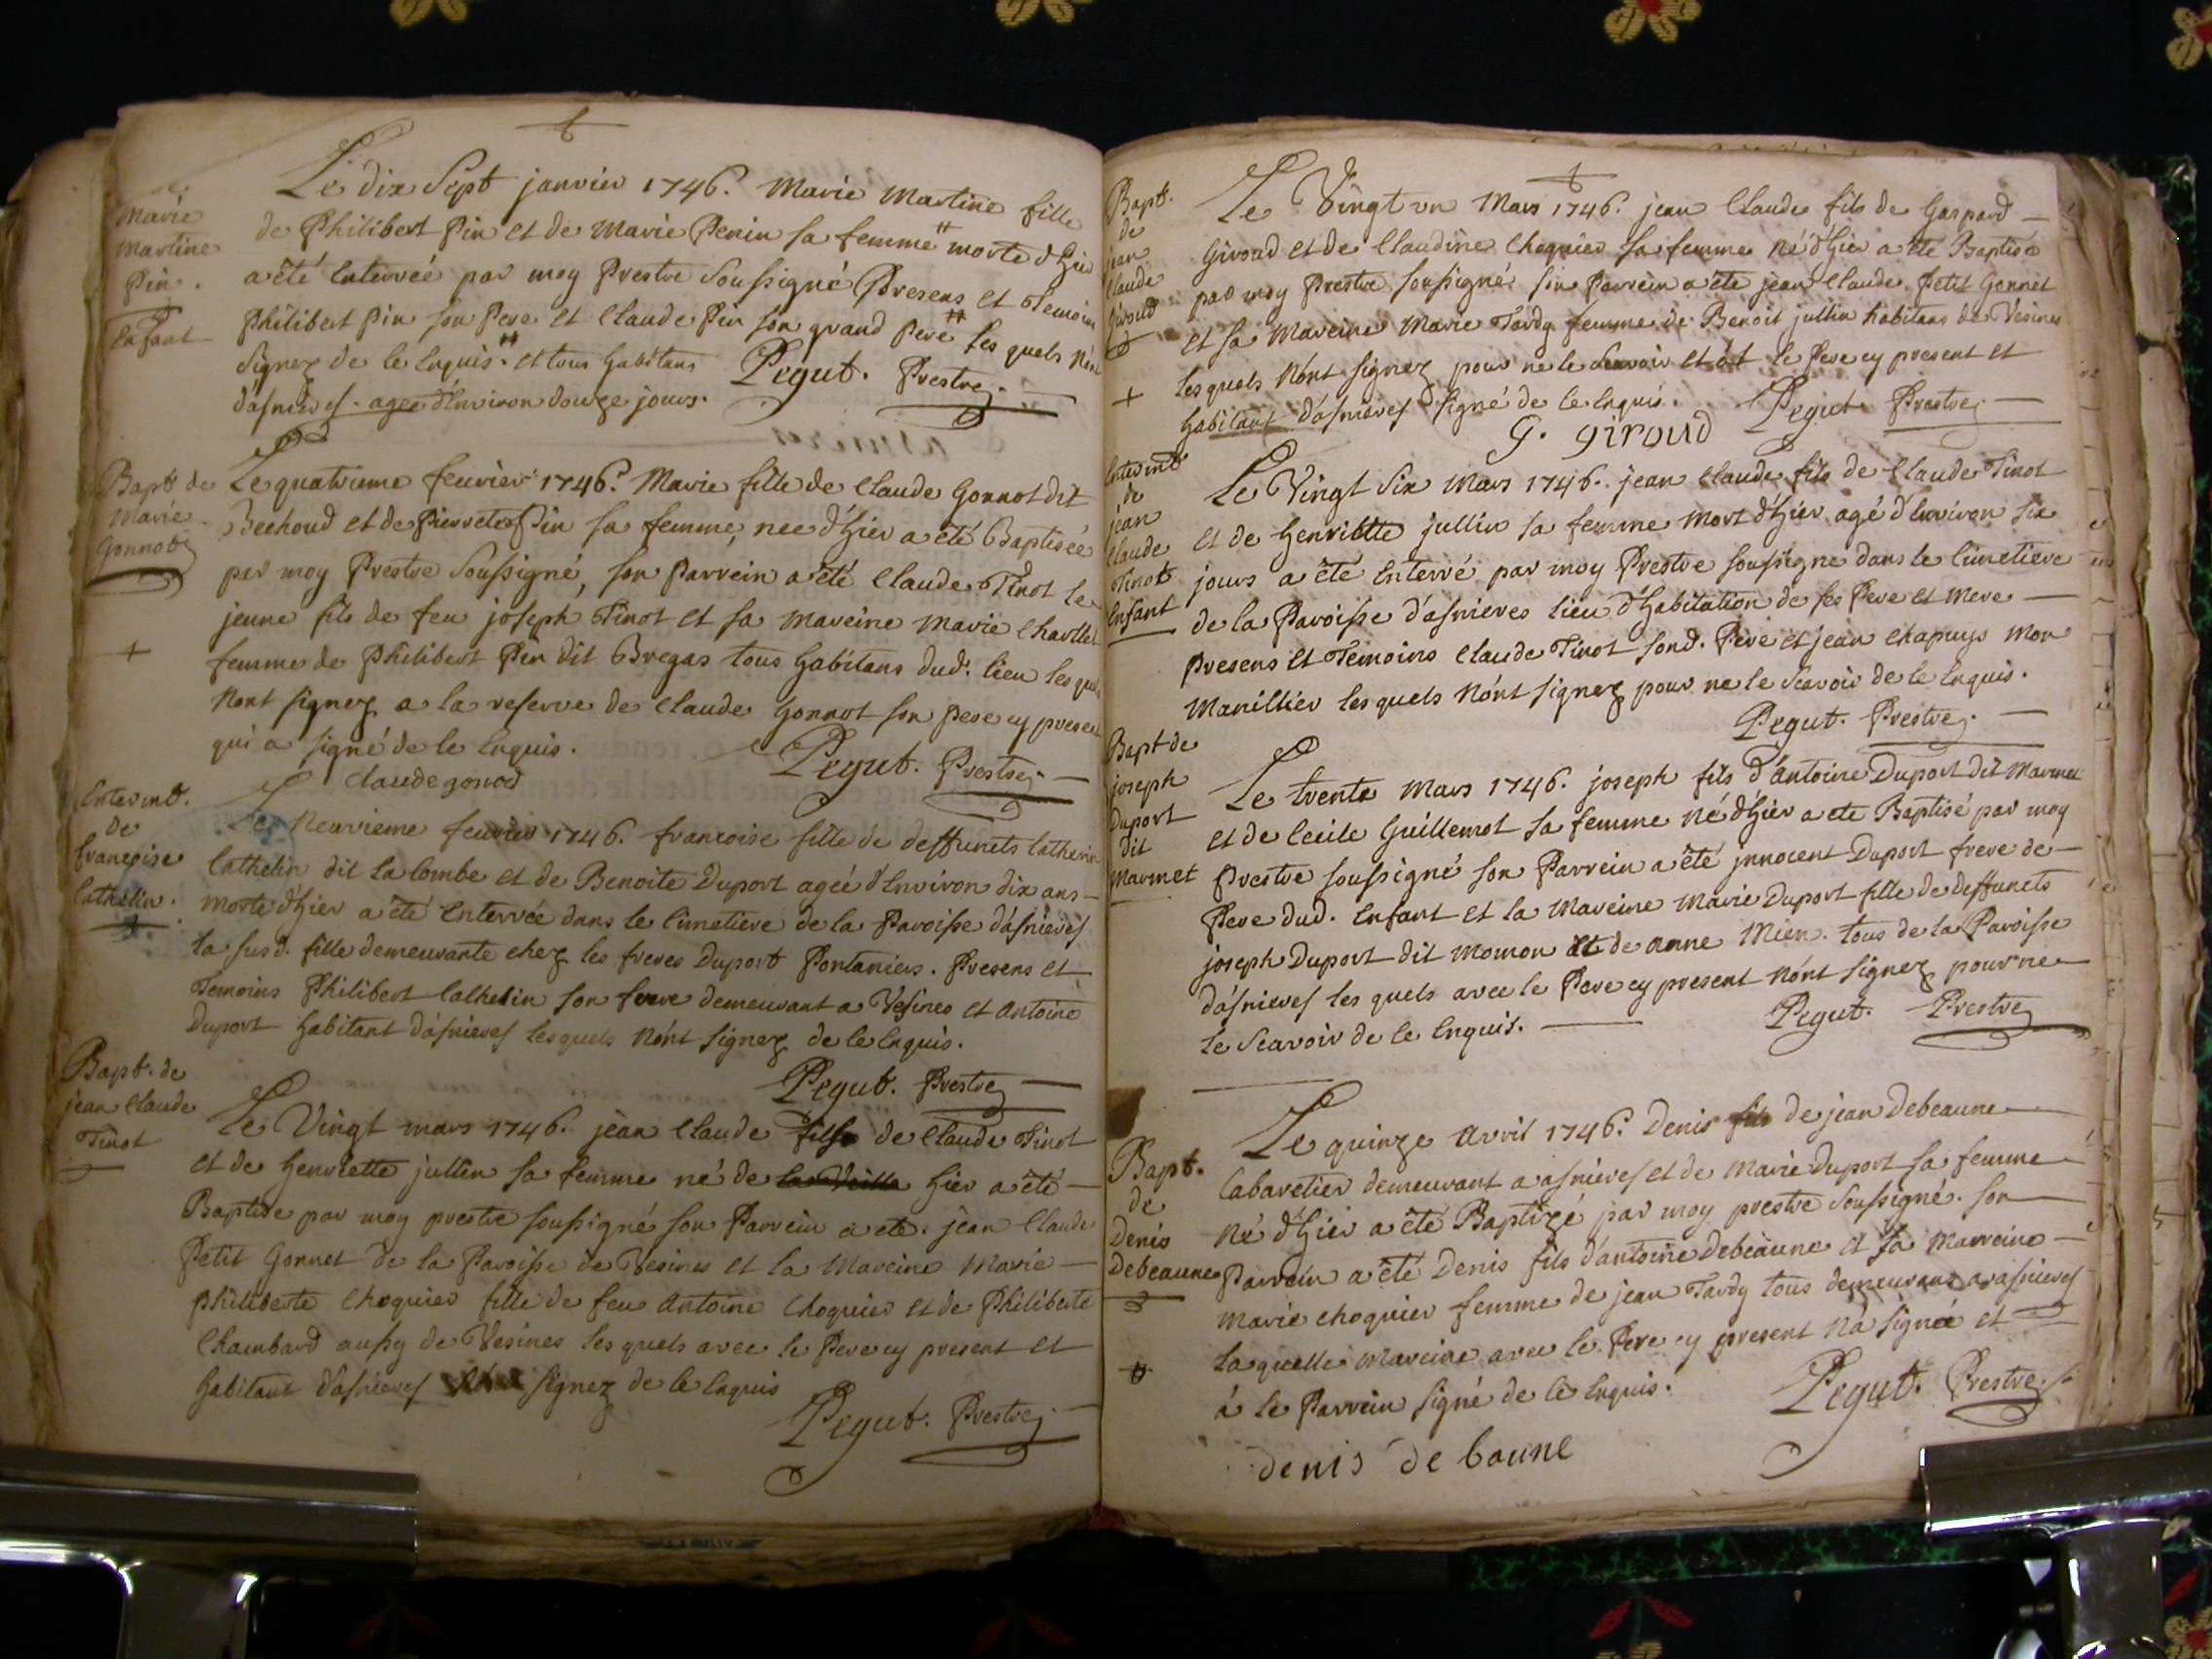 Marie
Martine
Pin.
Enfant
Le dix Sept janvier 1746. Marie Martine fille
de Philibert Pin et de Marie Penin sa femme morte d'hier
a été Enterreé par moy Prestre Soussigné Presens et Temoins
Philibert Pin son Pere et Claude Pin son grand Pere les quels n'ont
Signez de ce Enquis. et tous habitans
d'asnieres. ageé d'Environ douze jours.
Pegut. Prestre.
Bapt. de
Marie
Gonnot
Le quatrieme feuvrier 1746. Marie fille de Claude Gonnot dit
Bechoud et de Pierrete Pin sa femme, nee d'hier a été Baptiseé
par moy Prestre Soussigné, son Parrein a été Claude Tinot le
jeune fils de feu joseph Tinot et sa Mareine Marie
femme de Philibert Pin dit Bregas tous habitans dud. lieu les quels
Nont signez a la reserve de Claude Gonnot son pere cy present
qui a signé de ce Enquis.
Claude gonod
Pegut. Prestre.
Entermt.
de
francoise
Cathelin.
Le Neuvieme feuvrier 1746. francoise fille de deffunets Catherin
Cathelin dit la Combe et de Benoite Duport ageé d'Environ dix ans
morte d'hier a été Enterrée dans le Cimetiere de la Paroisse d'asnieres
la susd. fille demeurante chez les freres Duport Pontaniers. Presens et
Temoins Philibert Cathelin son frere demeurant a Vesines et Antoine
Duport habitant d'asnieres lesquels n'ont signez de ce Enquis.
Pegut. Prestre
Bapt. de
jean Claude
Tinot
Le Vingt mars 1746. jean Claude fils de Claude Tinot
et de Henriette jullin sa femme né de la Veille hier a été
Baptise par moy prestre soussigné son Parrein a eté. jean Claude
Petit Gonnet de la Paroisse de Vesines et la Mareine Marie
Philiberte Choquier fille de feu Antoine Choquier et de Philiberte
Chambard aussy de Vesines les quels avec le Pere cy present et
habitant d'asnieres signez de ce Enquis
Pegut. Prestre.
Bapt.
de
jean
Claude
Giroud
Le Vingt un Mars 1746. jean Claude fils de Gaspard
Giroud et de Claudine Choquier sa femme né d'hier a été Baptisé
par moy Prestre soussigné son Parrein a été jean Claude Petit Gonnet
et sa Mareine Marie Tardy femme de Benoit jullin habitans de Vesines
lesquels n'ont signez pour ne le Scavoir et a le Pere cy present et
habitant d'asnieres signé de ce Enquis.
Pegut Prestre.
G. giroud
Entermt
de
jean
Claude
Tinot
Enfant
Le Vingt Six Mars 1746. jean Claude fils de Claude Tinot
et de Henriette jullin sa femme mort d'hier agé d'Environ six
jours a été Enterré par moy Prestre soussigné dans le Cimetiere
de la Paroisse d'asnieres lieu d'habitation de ses Pere et Mere
Presens et Temoins Claude Tinot sond. Pere et jean Chapuys mon
Manillier lesquels n'ont signez pour ne le Scavoir de ce Enquis.
Pegut. Prestre.
Bapt de
joseph
Duport
dit
Marmet
Le trente Mars 1746. joseph fils d'antoine Duport dit Marmet
et de Cecile Guillemot sa femme né d'hier a ete Baptisé par moy
Prestre soussigné son Parrein a été jnnocent Duport frere de
Pere dud. Enfant et la Mareine Marie Duport fille de deffunets
joseph Duport dit Momon et de Anne Mien. tous de la Paroisse
d'asnieres les quels avec le Pere cy present n'ont signez pour ne
le Scavoir de ce Enquis.
Pegut. Prestre
Bapt.
de
Denis
Debeaune
Le quinze Avril 1746. Denis fils de jean Debeaune
Cabaretier demeurant a asnieres et de Marie Duport sa femme
Né d'hier a été Baptizé par moy prestre soussigné. son
Parrein a été Denis fils d'antoine Debeaune et sa Marreine
Marie Choquier femme de jean Tardy tous demeurans a asnieres
laquelle Mareine avec le Pere cy present n'a signée et
a le Parrein signé de ce Enquis.
Pegut. Prestre.
denis de boune